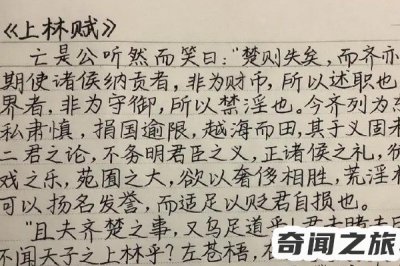 《上林赋》
亡是公听然而笑曰:"楚则失矣,而齐亦
期使诸侯纳贡者,非为财币,所以述职也
界者,非为守御,所以禁淫也。今齐列为东
私肃慎,捐国逾限,越海而田,其于义固未
二君之论,不务明君臣之义,正诸侯之礼,
戏之乐,苑囿之大,欲以奢侈相胜,荒淫相
可以扬名发誉,而适足以贬君自损也。
"且夫齐楚之事,又乌足道乎!君未睹夫巨
不闻天子之上林乎?左苍梧,
奇闻之旅